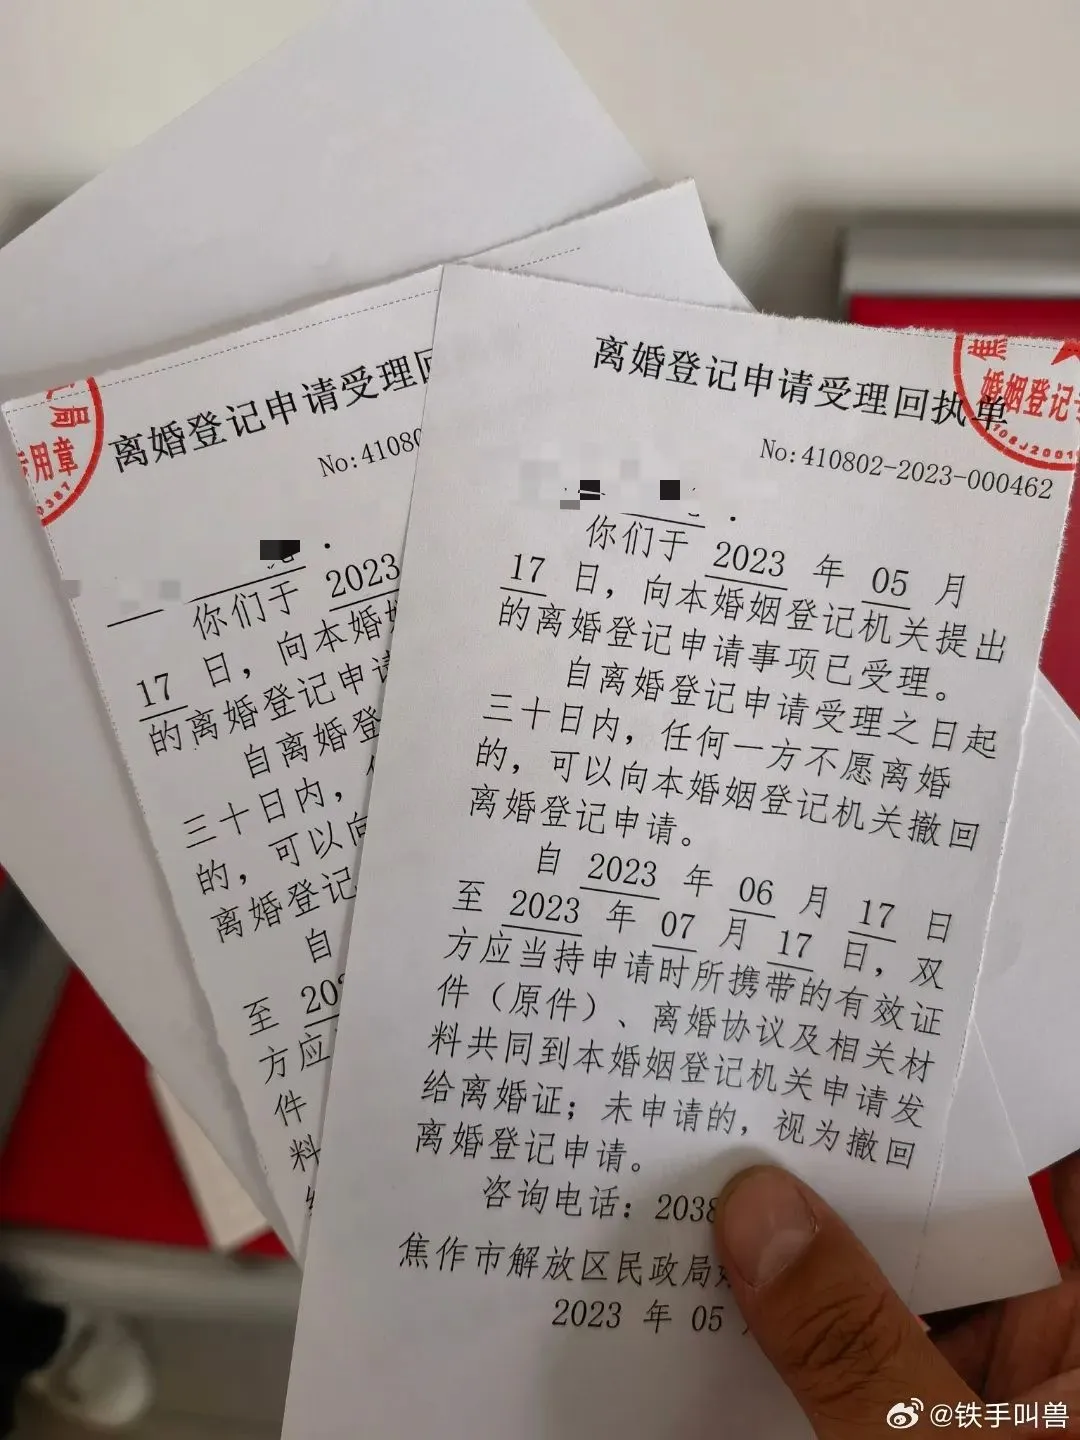 离婚登记申请受理回
No:41080
你们于 2023
17 日，向本婚
的离婚登记申请
自离婚登
三十日内，
的，可以向
离婚登记
自
至 20
方应
件
料
局
专用章
离婚登记申请受理回执单
No:410802-2023-000462
焦
婚姻登记专
你们于 2023 年 05 月
17 日，向本婚姻登记机关提出
的离婚登记申请事项已受理。
自离婚登记申请受理之日起
三十日内，任何一方不愿离婚
的，可以向本婚姻登记机关撤回
离婚登记申请。
自 2023 年 06 月 17 日
至 2023 年 07 月 17 日，双
方应当持申请时所携带的有效证
件（原件）、离婚协议及相关材
料共同到本婚姻登记机关申请发
给离婚证；未申请的，视为撤回
离婚登记申请。
咨询电话：2038
焦作市解放区民政局
2023 年 05
@铁手叫兽